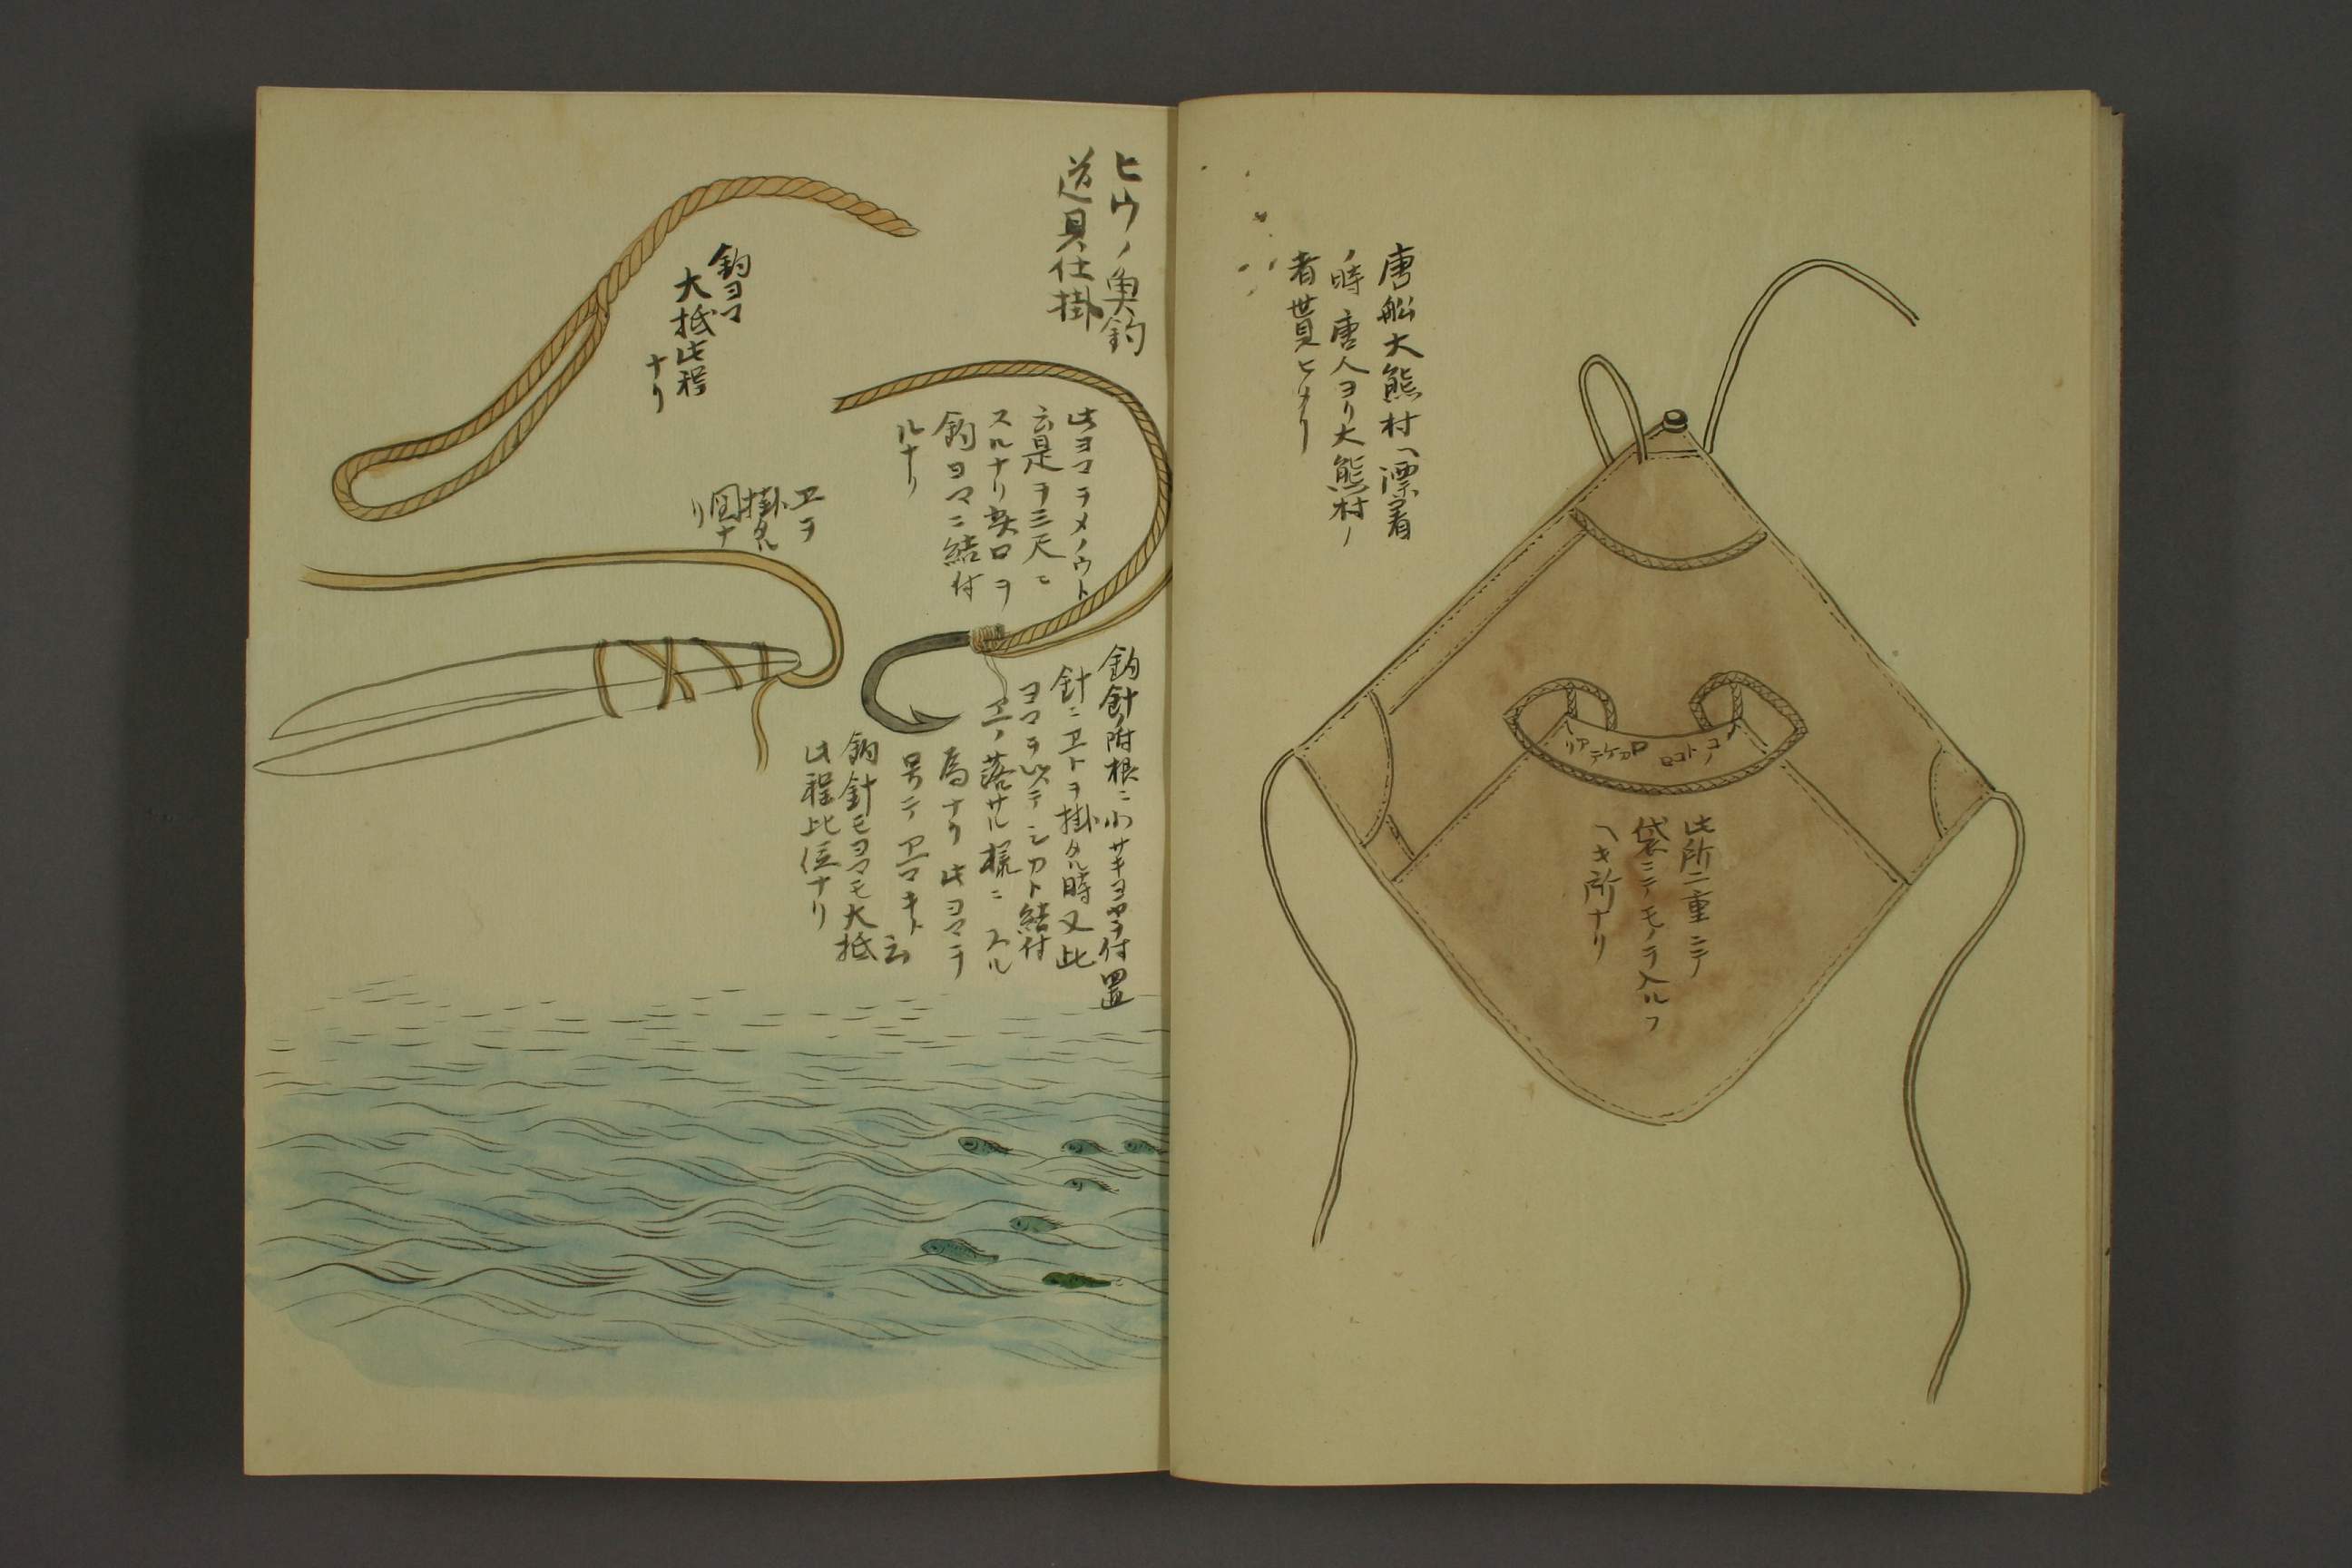 唐船大熊村ヘ漂着
ノ時唐人ヨリ大熊村ノ
者貰ヒタリ
コノトコロ
口アケテアリ
此所二重ニテ
袋ニテモノヲ入ルフ
ヘキ所ナリ
ヒウノ魚釣
道具仕掛
此ヨマヲメノウト
云是ヲ三尺ニ
スルナリ
釣ヨマニ結付
ルナリ
釣ヨマ
大抵此程
ナリ
ヱヲ
掛タル
図ナ
リ
釣針ノ附根ニ小サキヨマヲ付置
針ニヱトヲ掛タル時又此
ヨマヲ以テシカト結付
ヱノ落サル様ニスル
為ナリ此ヨマヲ
号テヱマキト云
釣針モヨマモ大抵
此程比位ナリ